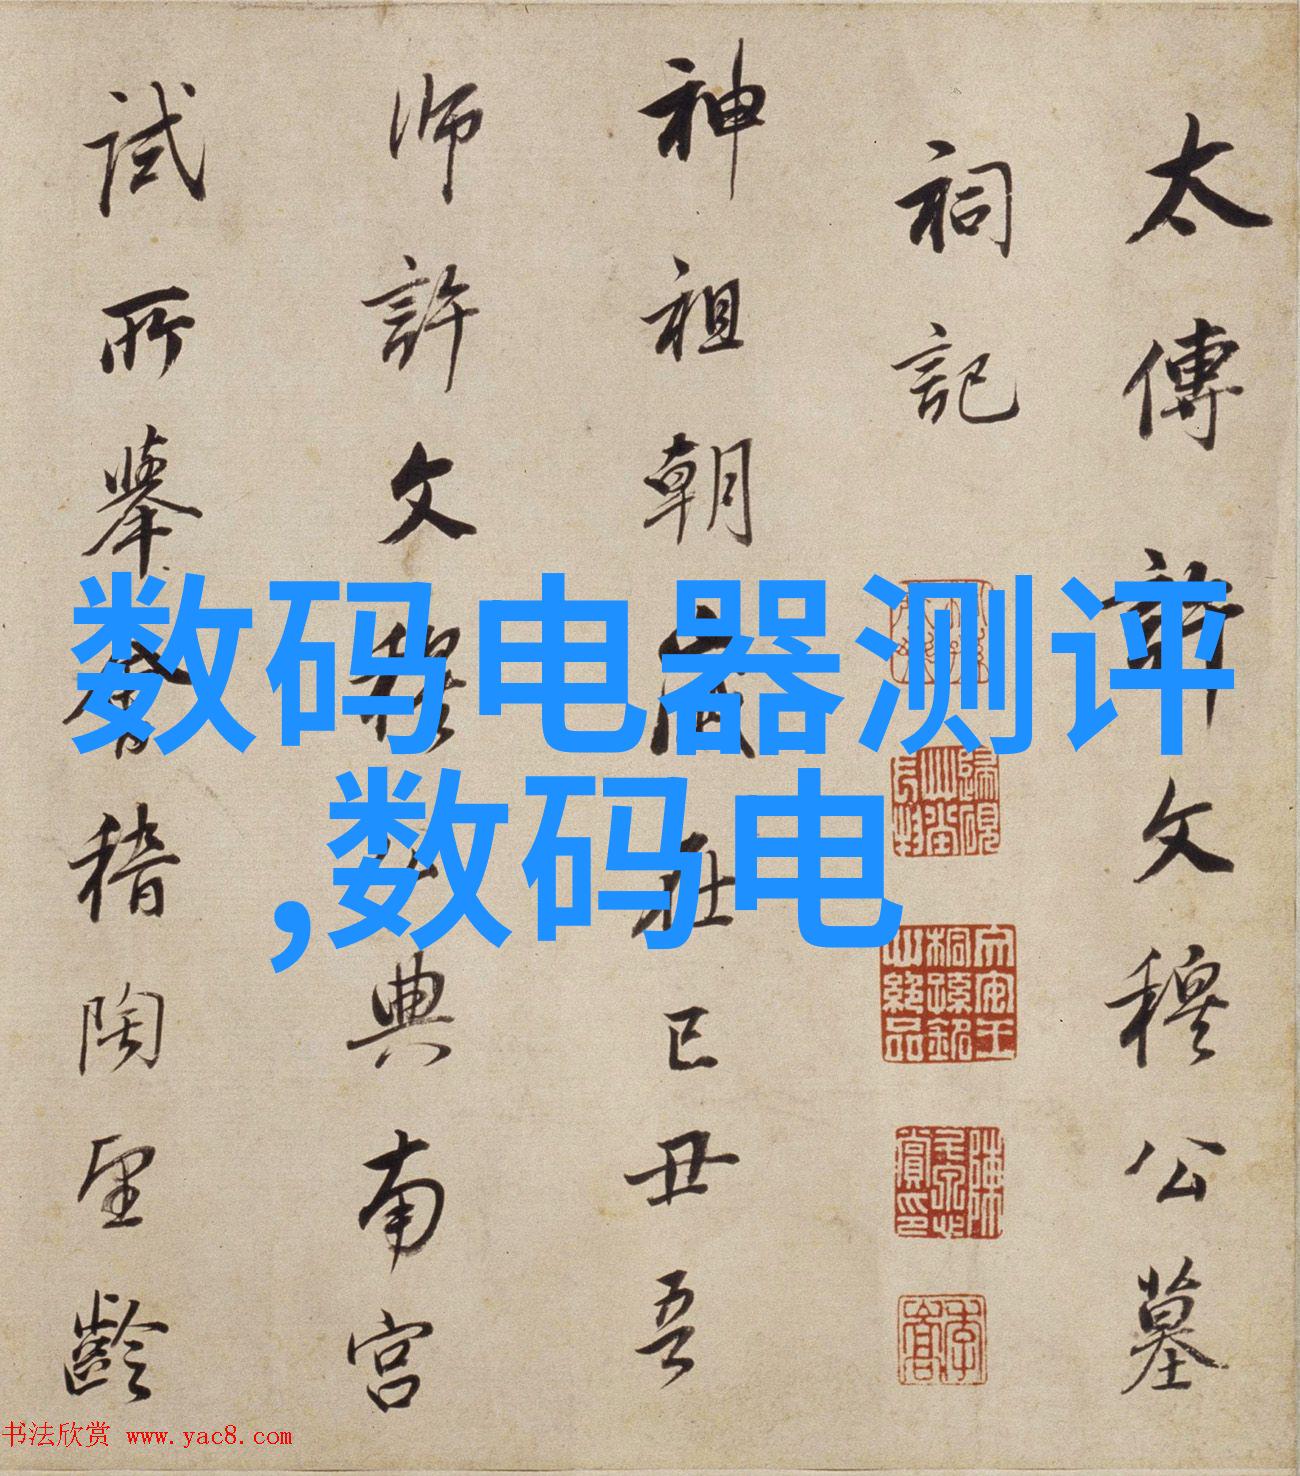 太傅許文穆公墓
祠記
神祖朝歲在已丑吾
師許文穆公典南宮
試所舉會稽陶望齡
数码电器测评
,数码电
书法欣赏 www.yac8.com